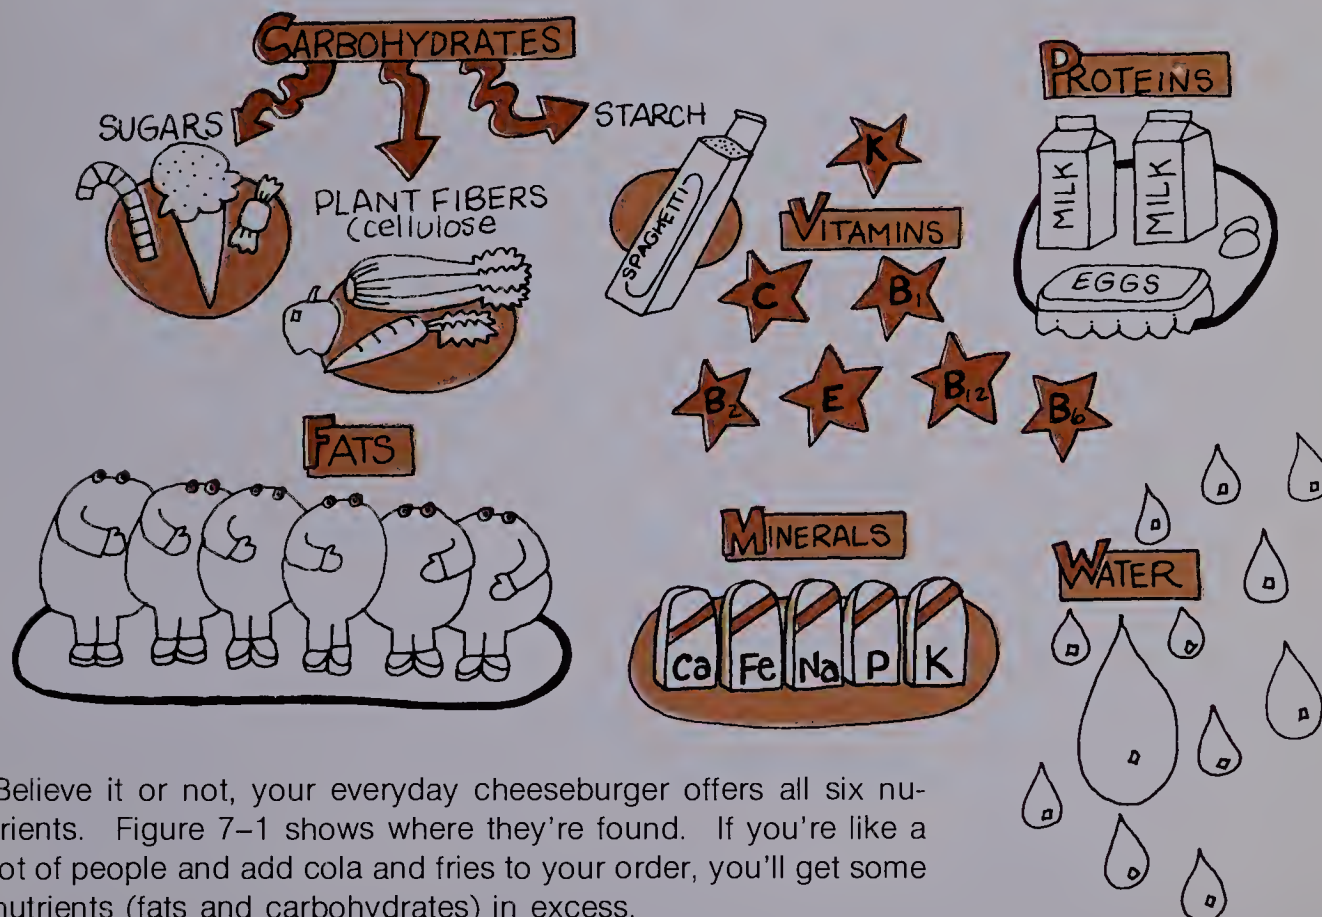 CARBOHYDRATES
SUGARS
PLANT FIBERS
(cellulose
STARCH
SPAGHETTI
K
VITAMINS
C
B1
B2
E
B12
B6
PROTEINS
MILK
MILK
EGGS
FATS
MINERALS
Ca
Fe
Na
P
K
WATER
Believe it or not, your everyday cheeseburger offers all six nu-
rients. Figure 7–1 shows where they're found. If you're like a
ot of people and add cola and fries to your order, you'll get some
nutrients (fats and carbohydrates) in excess.